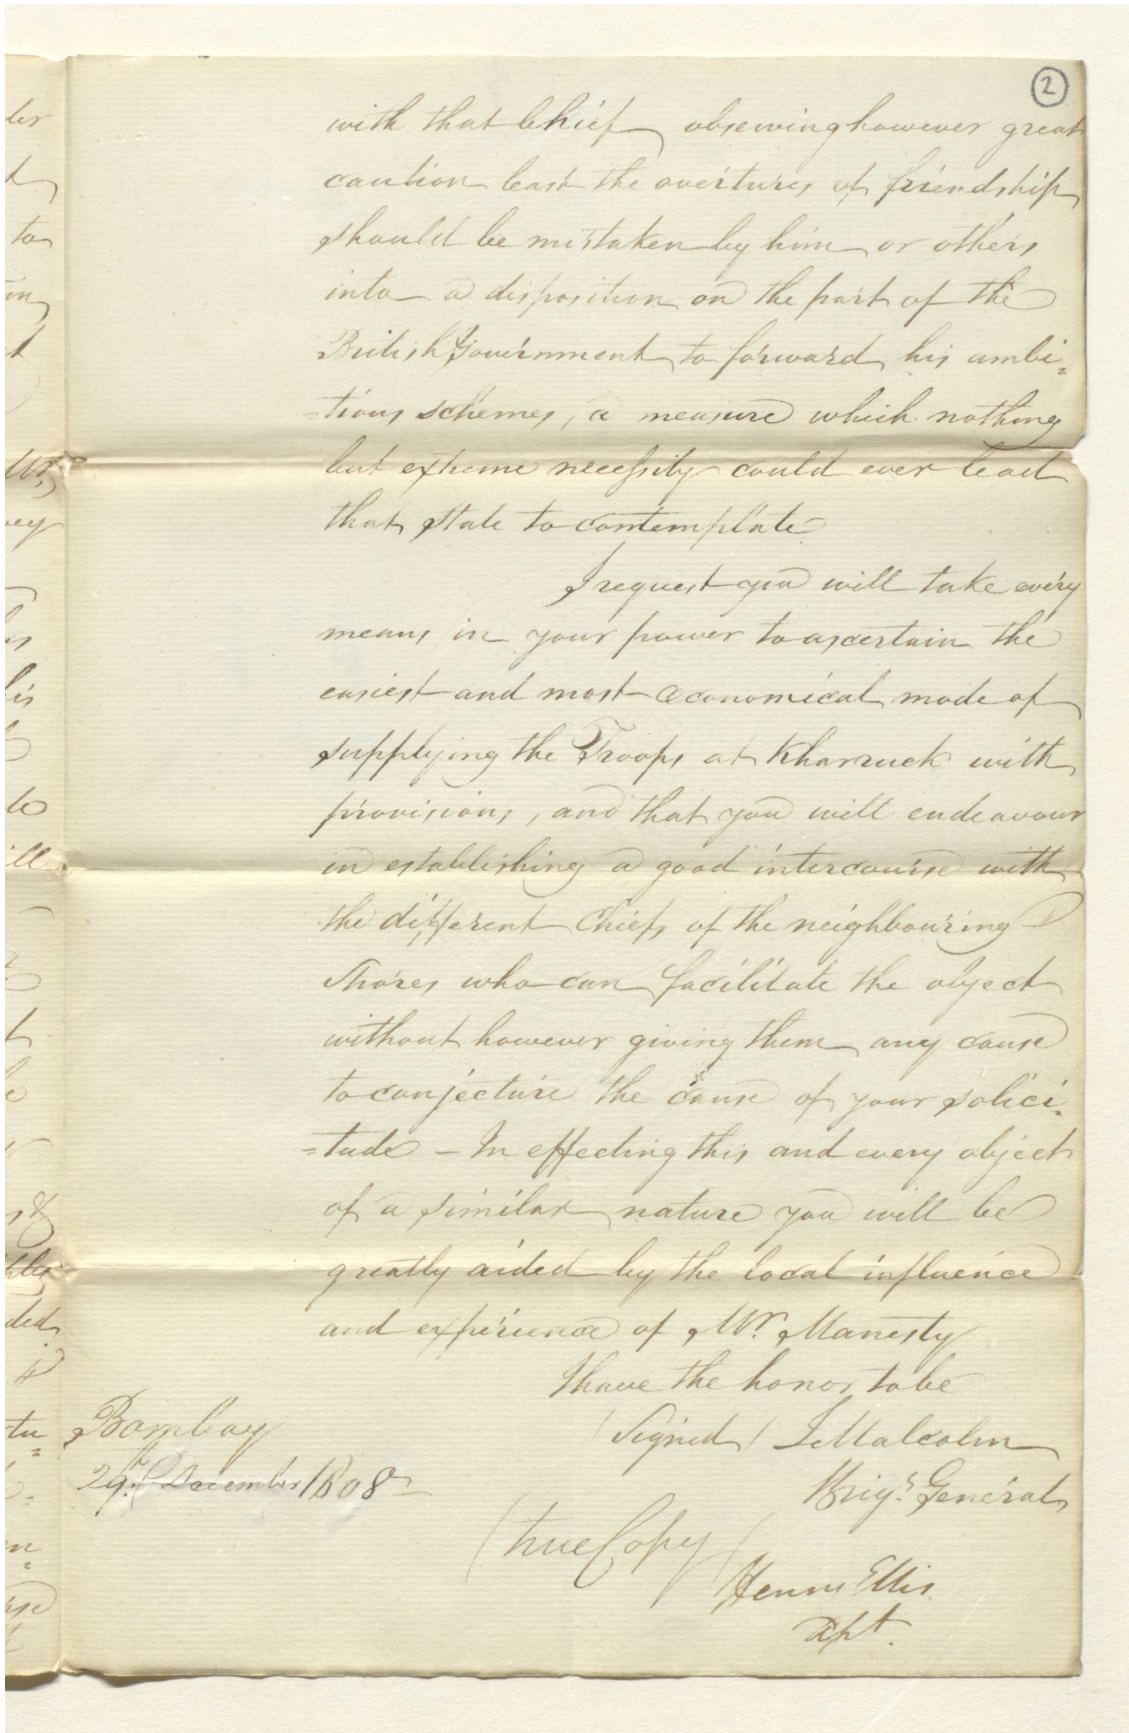 2
with that Chief observing however great
caution least the overtures of friendship
should be mistaken by him or others
into a disposition on the part of the
British Government to forward his ambi=
=tious schemes, a measure which nothing
but extreme necessity could ever lead
that state to contemplate
I request you will take every
means in your power to ascertain the
easiest and most economical mode of
supplying the Troops at Kharruck with
provisions, and that you will endeavour
in establishing a good intercourse with
the different Chiefs of the neighbouring
Shores who can facilitate the object
without however giving them any cause
to conjecture the cause of your solici=
=tude – In effecting this and every object
of a similar nature you will be
greatly aided by the local influence
and experience of Mr. Manesty
I have the honor to be
(Signed) J Malcolm
Brigr. General
Bombay
29th December 1808
(true Copy)
Henry Ellis